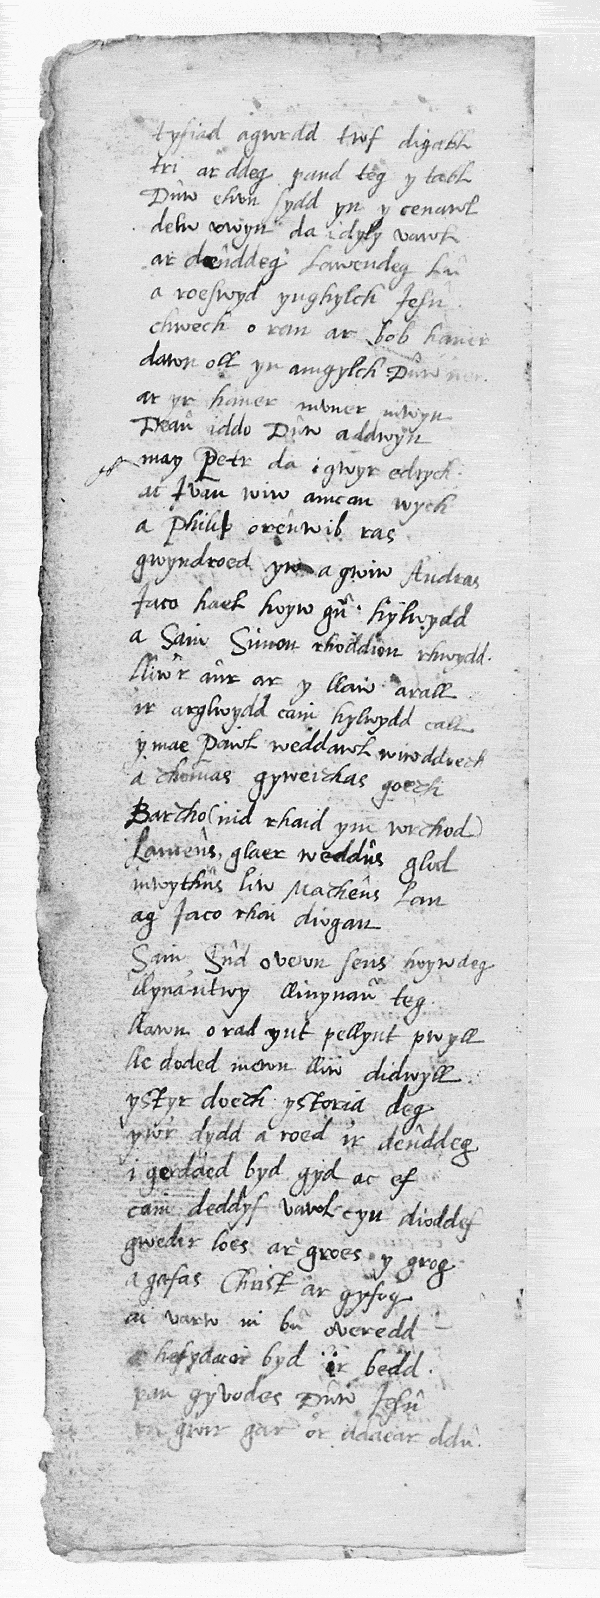 tyfiad agwrdd twf digabl
tri ar ddeg pand teg y tabl
Dûw elwn sydd yn y cenawl
delw vwyn da i dyly vawl
ar dêuddeg Lawendeg Lû
a roeswyd ynghylch Jesû
chwech o ran ar bob haner
dawn oll yn amgylch Dûw ner.
ar yr haner mwner mwyn
Deaû iddo Dûw addwyn
may Petr da i gwyr edrych
ac Ivan wiw amcan wych
a Philip orênwib ras
gwyndroed yw a gwiw Andras
Jaco hael hoyw gû hylwydd
a Sain Simon rhoddion rhwydd.
lliw'r aûr ar y llaw arall
ir arglwydd cain hylwydd call
y mae Pawl weddawl wiwddrech
a thomas gyweithas goeth
Bartho (nid rhaid ym wrthod)
Lameûs, glaer weddûs glod
mwythûs liw Matheûs Lan
ag Jaco rhai diogan
Sain Sûd ovewn sens hoywdeg
llyna'ntwy llinynaû teg.
llawn o rad ynt pellynt pwyll
lle doded mewn lliw didwyll
ystyr doeth ystoria deg
yw'r dydd a roed i'r dêuddeg
i gerdded byd gyd ac ef
cain deddyf vawl cyn dioddef
gwedir loes ar groes y grog
a gafas Christ ar gyfog
ac varw ni bû overedd
hefyd byd ir bedd.
pan gyvodes Dûw Jesû
gwir gar o'r ddaear ddû.